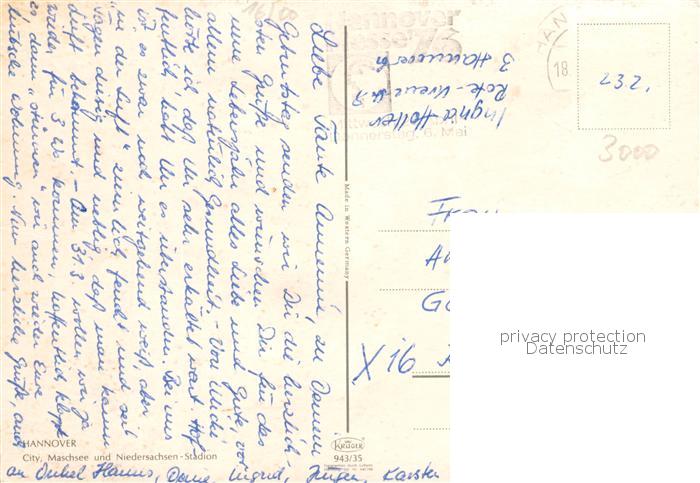 Liebe Tante Annemi, zu Deinem
Geburtstag senden wir Dir die herzlich
sten Grüße und wünschen Dir für das
neue Lebensjahr alles Liebe und Gute, vor
allem natürlich Gesundheit. – Von Mucki
hörte ich, daß Du sehr erkältet warst. Hof-
fentlich hast Du es überstanden. Bei uns
ist es zwar noch weitgehend weiß, aber
in der Luft ziemlich feucht und seit
Tagen diesig und neblig, daß man kaum
Luft bekommt. – Am 31.3 wollen wir ja
wieder für 3 Wo kommen, hoffentlich klappt
es dann "stürmen" wir auch wieder Eure
hübsche Wohnung. Nun herzliche Grüße, auch
an Onkel Hanns, Deine Ingrid, Jürgen, Karsten
HANNOVER
City, Maschsee und Niedersachsen-Stadion
Made in Western Germany
KRÜGER
943/35
Hannover
Messe '73
Donnerstag, 6. Mai
18.
Ingrid
Rote-Kreuz-Str.
3 Hannover 61
23.2.
3000
X 16
privacy protection
Datenschutz